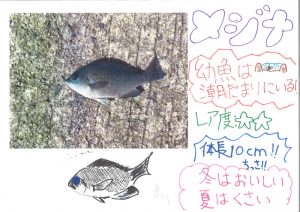 メジナ
幼魚は
潮だまりにいる!
レア度☆☆
体長10cm!!
ちっさ!!
冬はおいしい
夏はくさい